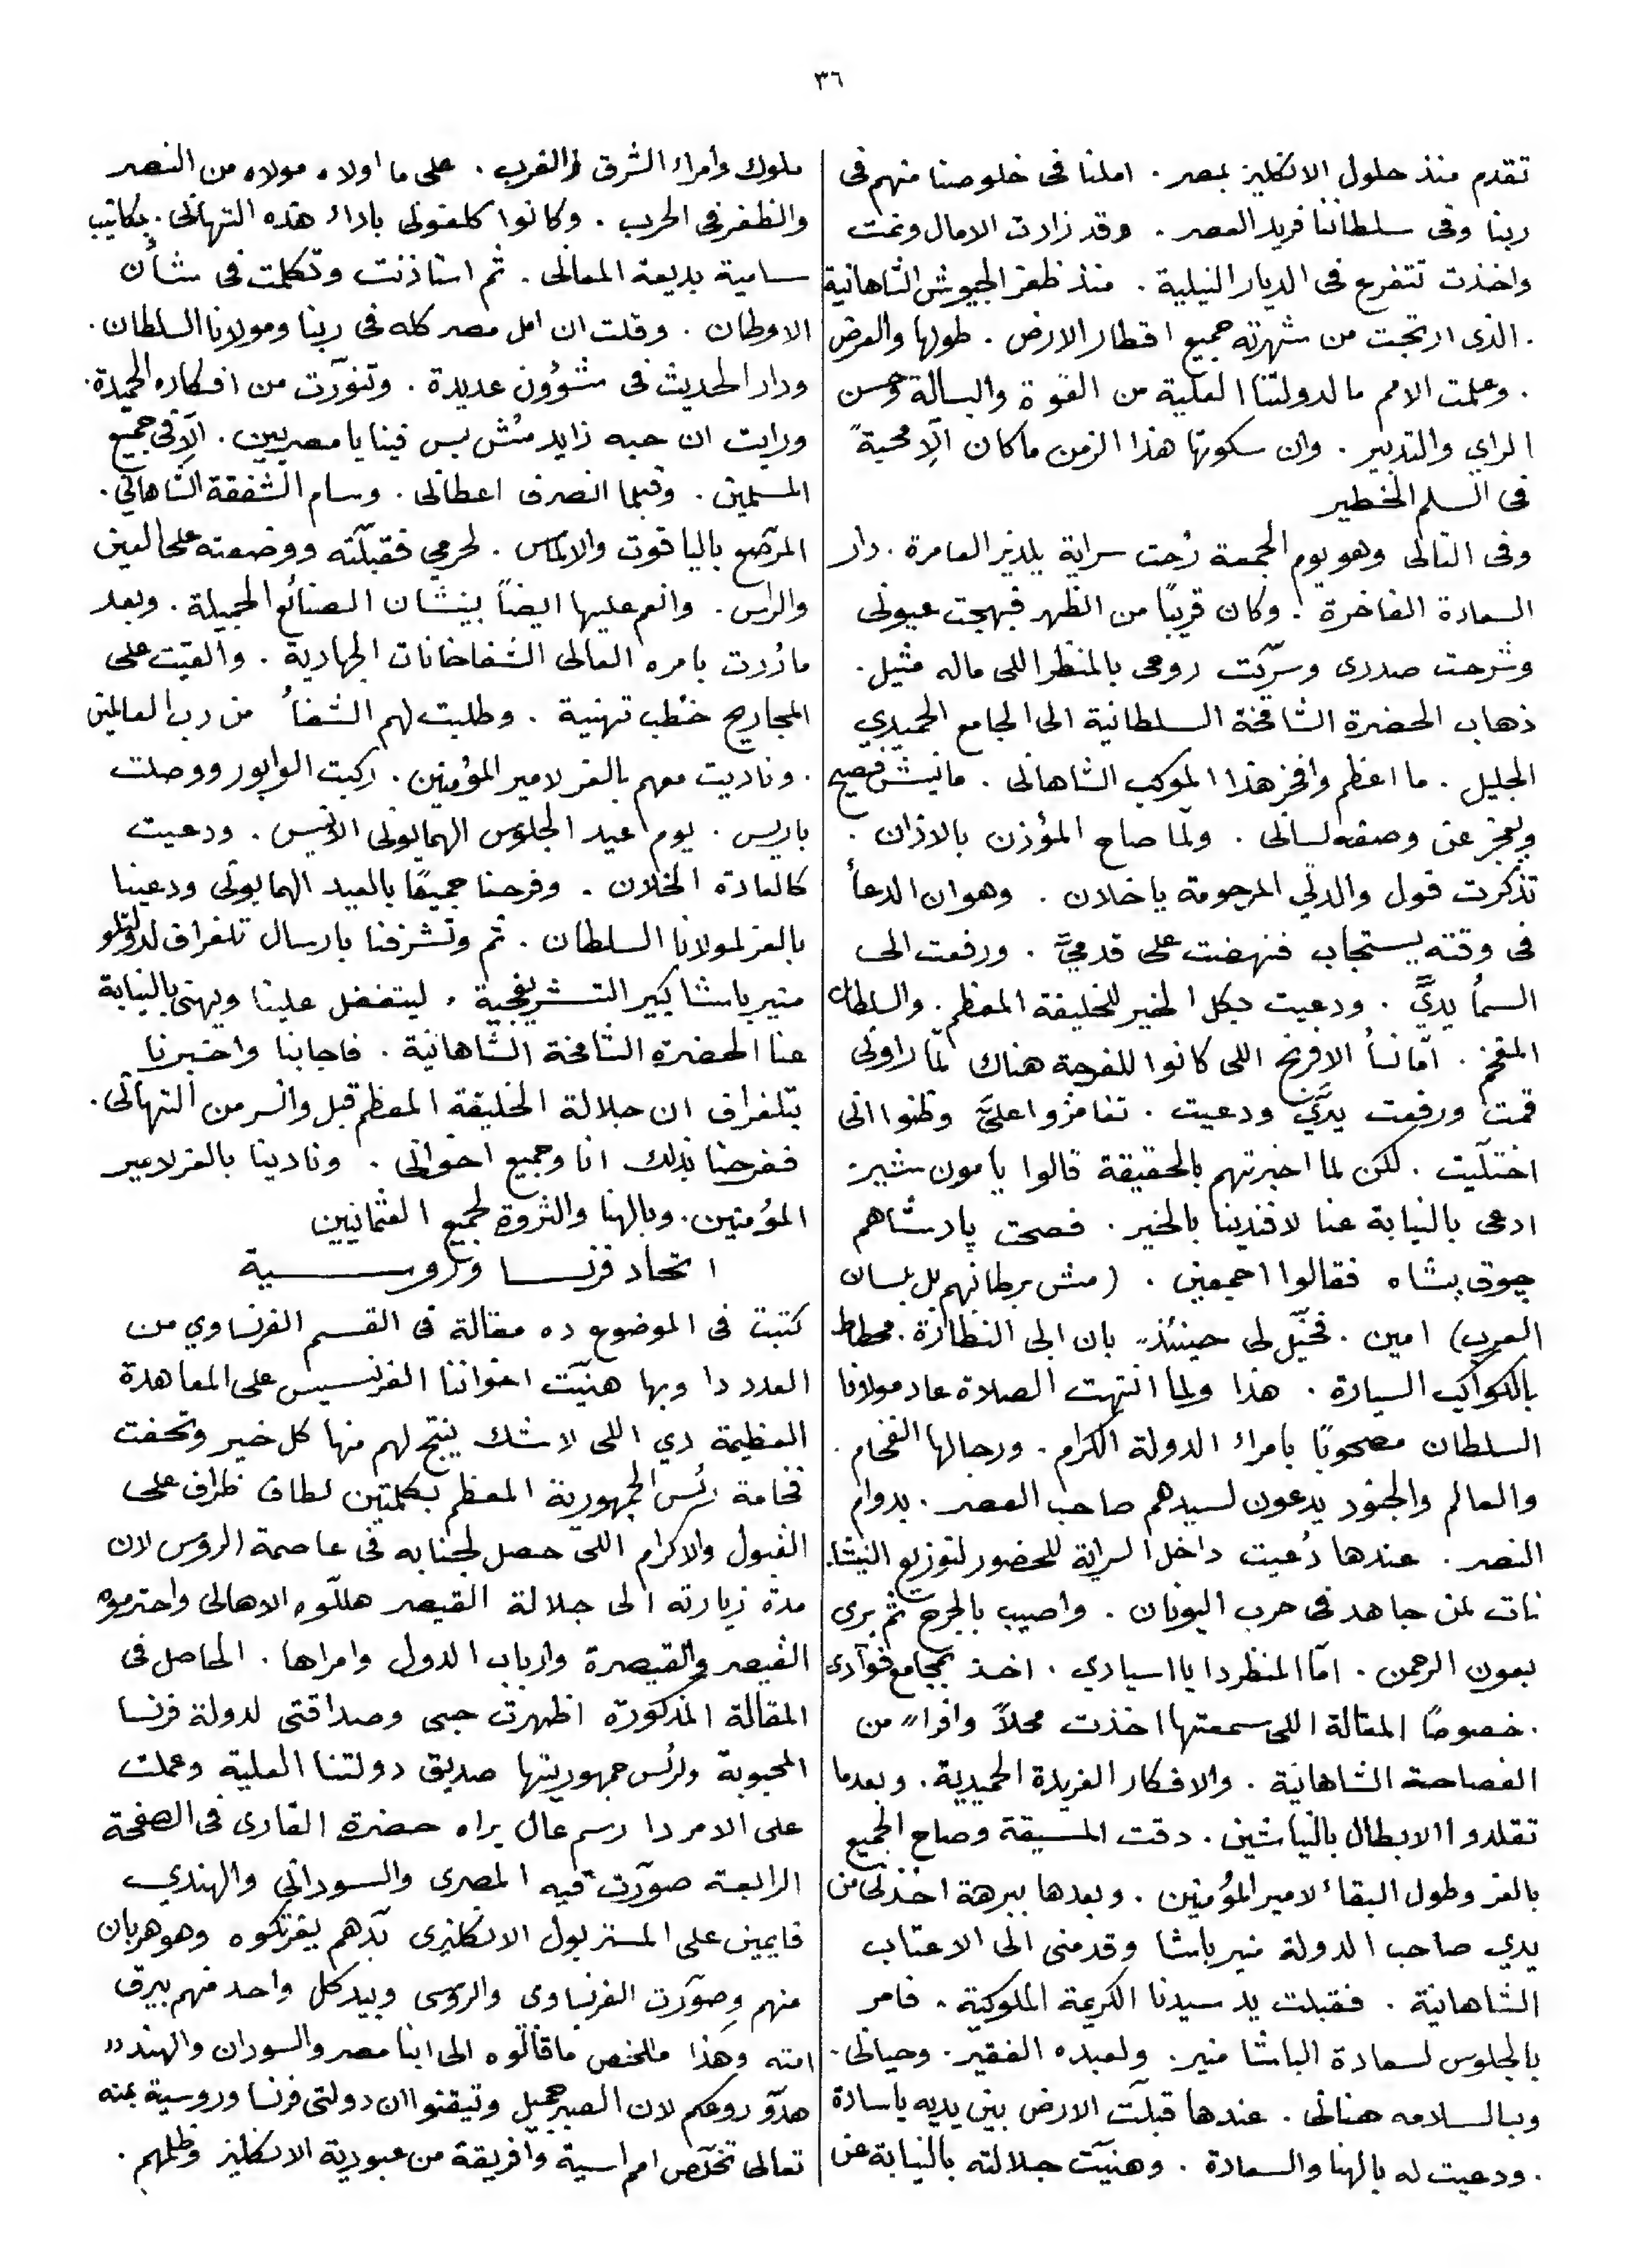 ٣٦
تقدم منذ حلول الانكليز بمصر . املنا فى خلوصنا منهم فى
ربنا وفى سلطاننا فريد العصر . وقد زادت الامال ونمت
واخذت تتفرع فى الديار النيلية . منذ ظفر الجيوش الشاهانية
. الذى ارتجت من شهرته جميع اقطار الارض . طولها والعرض
. وعلمت الامم ما لدولتنا العلية من القوة والبسالة وحسن
الراي والتدبير . وان سكوتها هذا الزمن ماكان الّا محبةً
فى السلم الخطير
وفى التالى وهو يوم الجمعة رُحت سراية يلديز العامرة . دار
السعادة الفاخرة . وكان قريبًا من الظهر فبهجت عيونى
وشرحت صدرى وسرّت روحى بالمنظر اللى ماله مثيل .
ذهاب الحضرة الشامخة السلطانية الى الجامع الحميدي
الجليل . ما اعظم وافخر هذا الموكب الشاهانى . مانيش فصيح
ويعجز عن وصفه لسانى . ولما صاح المؤذن بالاذان .
تذكرت قول والدتي المرحومة ياخلان . وهو ان الدعأ
فى وقته يستجاب فنهضت على قدميَّ . ورفعت الى
السمأ يديَّ . ودعيت بكل الخير للخليفة المعظم . والسلطان
المفخم . امّا نسأ الافرنج اللى كانوا للفرجة هناك لمّا راونى
قمت ورفعت يديَّ ودعيت . تغامزوا عليَّ وظنوا انى
اختلّيت . لكن لما اخبرتهم بالحقيقة قالوا يا مون شير
ادعى بالنيابة عنا لافندينا بالخير . فصحت پادشاهم
چوق يشاه فقالوا اجمعين . (مش برطانهم بل بلسان
العرب) امين . فخيّل لى حينئذ بان ابى النظارة . محطاط
بالكواكب السيارة . هذا ولما انتهت الصلاة عاد مولانا
السلطان مصحوبًا بامراء الدولة الكرام . ورجالها الفخام .
والعالم والجنود يدعون لسيدهم صاحب العصر . بدوام
النصر . عندها دُعيت داخل السراية للحضور لتوزيع النيشا
نات لمن جاهد فى حرب اليونان . واصيب بالجرح ثم برى
بعون الرحمن . امّا المنظر دا يا اسيادي . اخذ بمجامع فوآدى
. خصوصًا المقالة اللى سمعتها اخذت محلاً وافرا من
الفصاحة الشاهانية . والافكار الفريدة الحميدية . وبعدما
تقلدوا الابطال بالنياشين . دقت المسيقة وصاح الجميع
بالعز وطول البقاء لامير المؤمنين . وبعدها ببرهة اخذنى من
يدي صاحب الدولة منير باشا وقدمنى الى الاعتاب
الشاهانية . فقبلت يد سيدنا الكريمة الملوكية . فامر
بالجلوس لسعادة الباشا منير . ولعبده الفقير . وحيانى .
وبالسلامه هنانى . عندها قبلّت الارض بين يديه ياسادة
. ودعيت له بالهنا والسعادة . وهنيّت جلالته بالنيابة عن
ملوك وأمراء الشرق والغرب . على ما اولاه مولاه من النصر
والظفر فى الحرب . وكانوا كلفونى باداء هذه التهانى . بكاتيب
سامية بديعة المعانى . ثم استاذنت وتكلمت فى شأن
الاوطان . وقلت ان امل مصر كله فى ربنا ومولانا السلطان .
ودار الحديث فى شؤون عديدة . وتنورّت من افكاره الحميدة .
ورايت ان حبه زايد مُش بس فينا يا مصريين . الّا وفى جميع
المسلمين . وقبلما انصرف اعطانى . وسام الشفقة الشاهاني .
المرصّع بالياقوت والالماس . لحرمي فقبلّته ووضعته على العين
والراس . وانعم عليها ايضاً بنيشان الصنائع الجميلة . وبعد
ما زُرت بامره العالى الشفاخانات الجهادية . والقيّت على
المجاريح خطب تهنية . وطلبت لهم الشفأ من رب العالمين
. وناديت معهم بالعز لامير المؤمنين . ركبت الوابور ووصلت
باريس . يوم عيد الجلوس الهمايونى الانيس . ودعيت
كالعادة الخلان . وفرحنا جميعًا بالعيد الهمايونى ودعينا
بالعز لمولانا السلطان . ثم وتشرفنا بارسال تلغراف لدولتلو
منير باشا كبير التشريفجية . ليتفضل علينا ويهنى بالنيابة
عنا الحضرة الشامخة الشاهانية . فاجابنا واخبرنا
بتلغراف ان جلالة الخليفة المعظم قبل وانسر من التهانى .
ففرحنا بذلك انا وجميع اخوانى . ونادينا بالعز لامير
المؤمنين . وبالهنا والثروة لجميع العثمانيين
اتحاد فرنسا وروسية
كتبت فى الموضوع ده مقالة فى القسم الفرنساوي من
العدد دا وبها هنيّت اخواننا الفرنسيس على المعاهدة
العظيمة دي اللى لاشك ينتج لهم منها كل خير وتحفت
فخامة رئس الجمهورية المعظم بكلمتين لطاف ظراف على
القبول والاكرام اللى حصل لجنابه فى عاصمة الروس لان
مدة زيارته الى جلالة القيصر هللّوه الاهالى واحترموه
القيصر والقيصرة وارباب الدول وامراها . الحاصل فى
المقالة المذكورة اظهرت حبى وصداقتى لدولة فرنسا
المحبوبة ولرئس جمهوريتها صديق دولتنا العلية وعملت
على الامر دا رسم عال يراه حضرة القارى فى الصفحة
الرابعة صورّت فيه المصرى والسودانى والهندي
قايمين على المستر بول الانكليزى بدّهم يفرتكوه وهو هربان
منهم وصورّت الفرنساوى والروسى وبيد كل واحد منهم بيرق
امته وهذا ملخص ماقالّوه الى ابنا مصر والسودان والهند "
هدّو روعكم لان الصبر جميل وتيقنوا ان دولتى فرنسا وروسية بمنه
تعالى تخلّص امم اسية وافريقة من عبودية الانكليز وظلمهم .